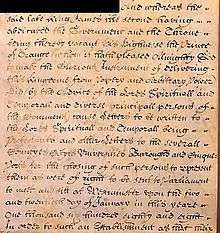 And whereas the
said late King James the second having
abdicated the Government and the Throne
being thereby vacant His Highnesse the Prince
of Orange whom it hath pleased Almighty God
to make the glorious Instrument of delivering
Kingdome from Popery and Arbitrary Power
did by the Advice of the Lords Spirituall and
Temporall and diverse principall persons of
the Commons cause Letters to be written to
the Lords Spirituall and Temporall being
Protestants and other Letters to the severall
Countyes Cityes Universities Burroughs and Cinque
Ports for the chusing of such persons to represent
them as were of right to be sent to parliament
to meet and sitt at Westminster upon the two
and twentyeth day of January in this yeare
One thousand six hundred eighty and eight
In order to such an Establishment as that their